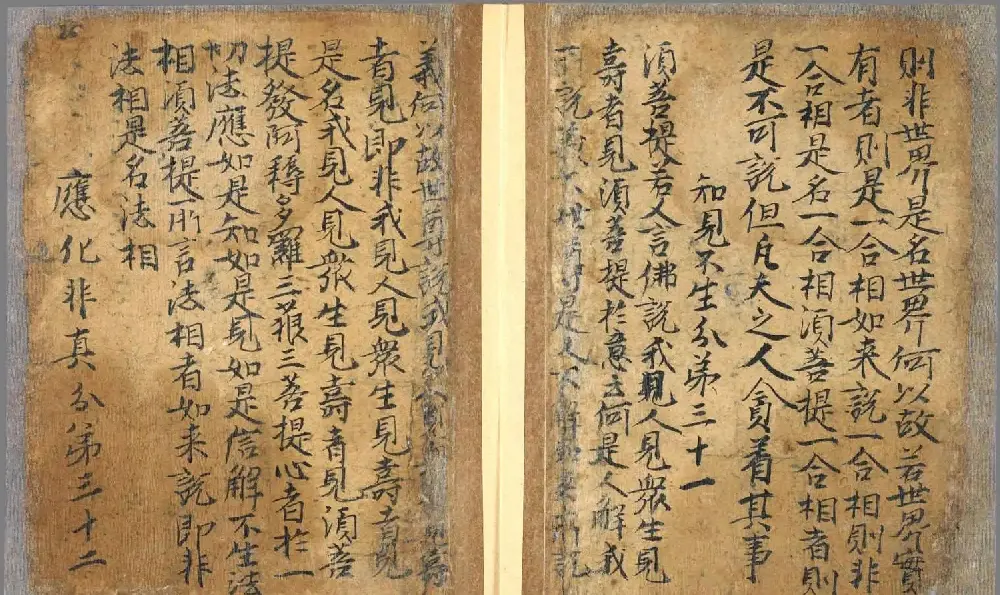 則非世界是名世界何以故若世界實
有者則是一合相如来說一合相則非
一合相是名一合相須菩提一合相者則
是不可說但凡夫之人貪着其事
知見不生分第三十一
須菩提若人言佛說我見人見眾生見
壽者見須菩提於意云何是人解我
所說義不世尊是人不解如来所說
義何以故世尊說我見人見眾生見壽
者見即非我見人見眾生見壽者見
是名我見人見眾生見壽者見須菩
提發阿耨多羅三藐三菩提心者於一
切法應如是知如是見如是信解不生法
相須菩提所言法相者如来說即非
法相是名法相
應化非真分第三十二